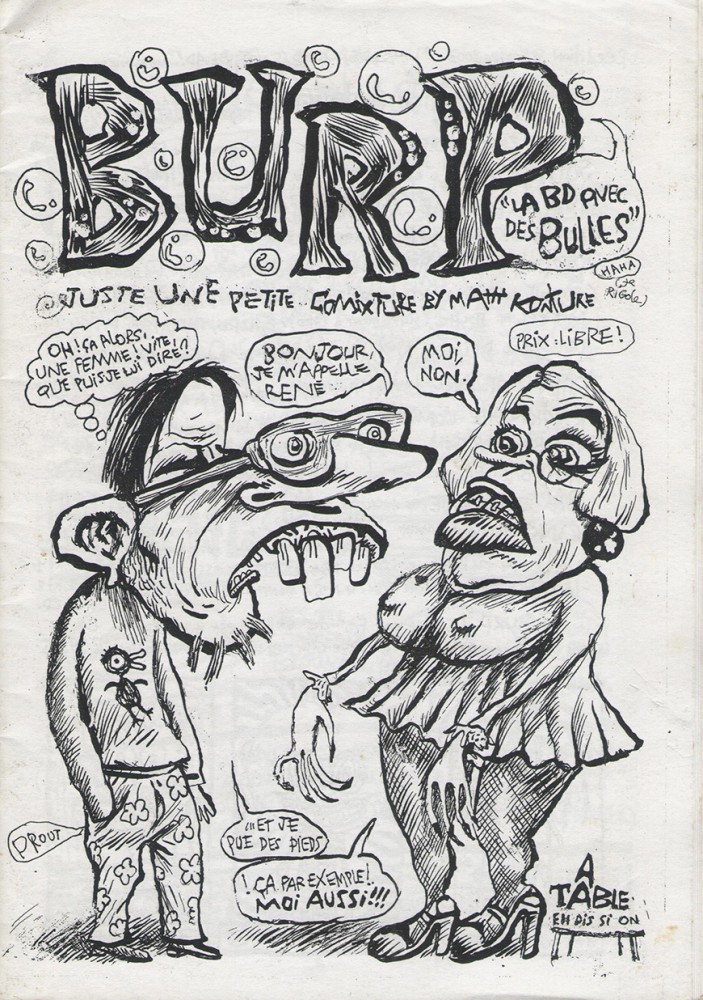 BURP
"LA BD AVEC
DES BULLES"
HAHA
RIGOLE)
JUSTE UNE PETITE COMIXTURE BY MATTT KONTURE
PRIX : LIBRE !
OH ! ÇA ALORS,
UNE FEMME ! VITE !
QUE PUIS JE LUI DIRE ?
BONJOUR,
JE M'APPELLE
RENÉ
MOI,
NON.
PROUT
...ET JE
PUE DES PIEDS
! ÇA PAR EXEMPLE !
MOI AUSSI !!!
A
TABLE
EH DIS SI ON